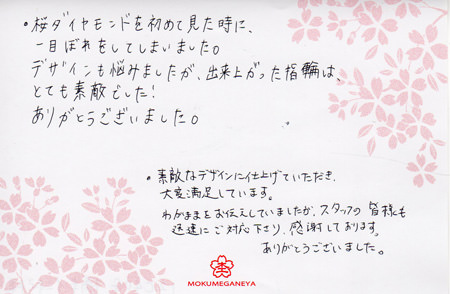 ・桜ダイヤモンドを初めて見た時に、
一目ぼれをしてしまいました。
デザインも悩みましたが、出来上がった指輪は、
とても素敵でした!
ありがとうございました。
・素敵なデザインに仕上げていただき、
大変満足しています。
わがままをお伝えしていましたが、スタッフの皆様も
迅速にご対応下さり、感謝しております。
ありがとうございました。
MOKUMEGANEYA